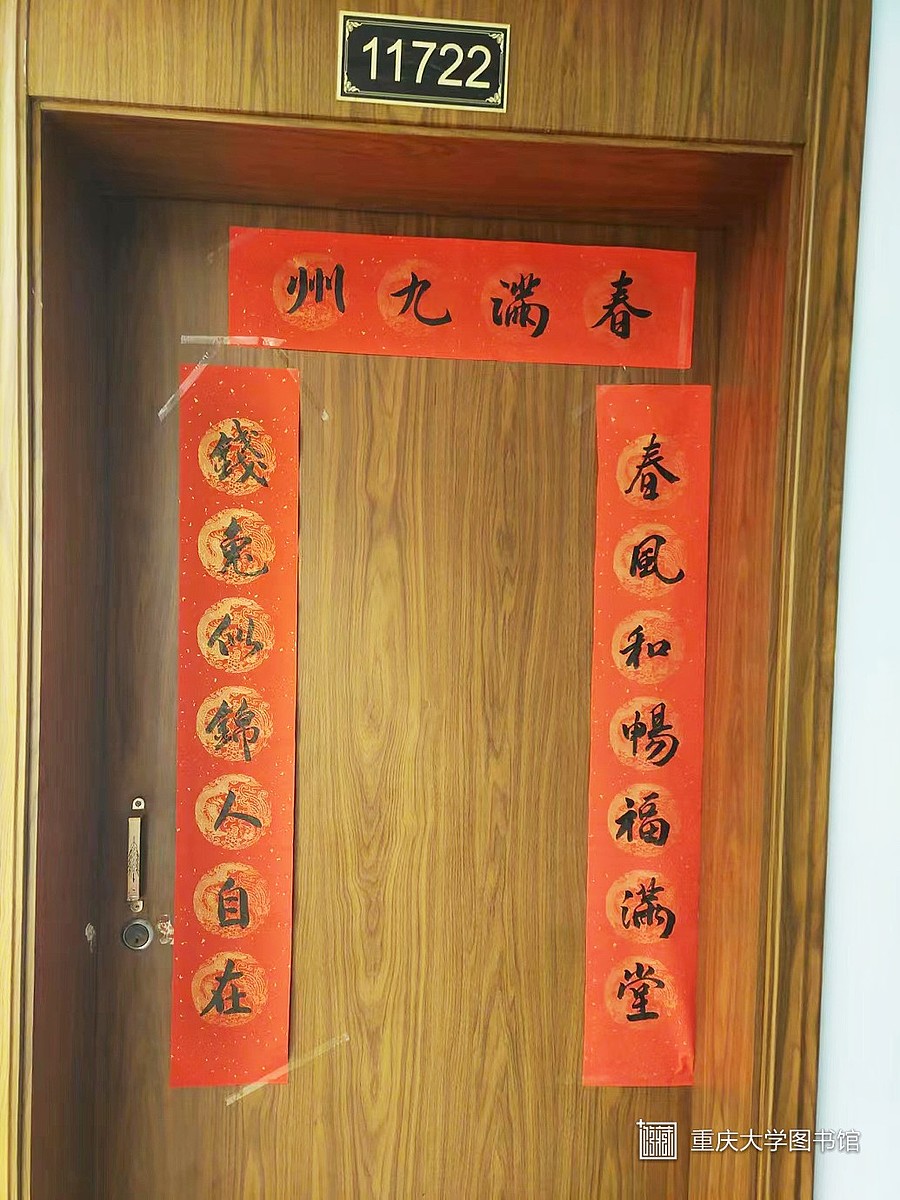 11722
春滿九州
春風和暢福滿堂
錢兔似錦人自在
重庆大学图书馆